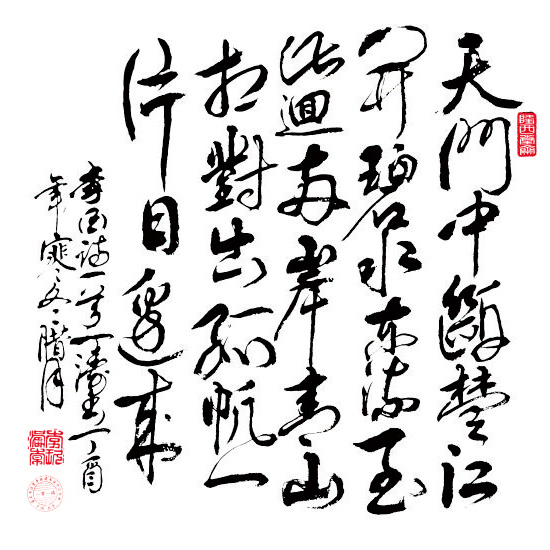 天門中斷楚江
開碧水東流至
此迴兩岸青山
相對出孤帆一
片日邊來
李白詩一首丁酉
年寒冬臘月